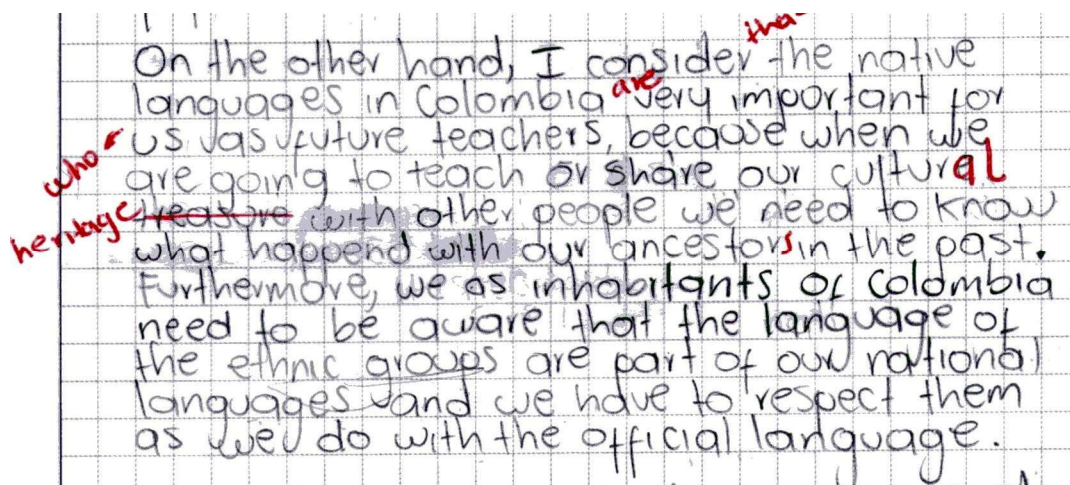 that
On the other hand, I consider the native
are
languages in Colombia very important for
who us as future teachers, because when we
are going to teach or share our cultural
heritage treasure with other people we need to know
what happend with our ancestors in the past.
Furthermore, we as inhabitants of Colombia
need to be aware that the language of
the ethnic groups are part of our national
languages and we have to respect them
as we do with the official language.